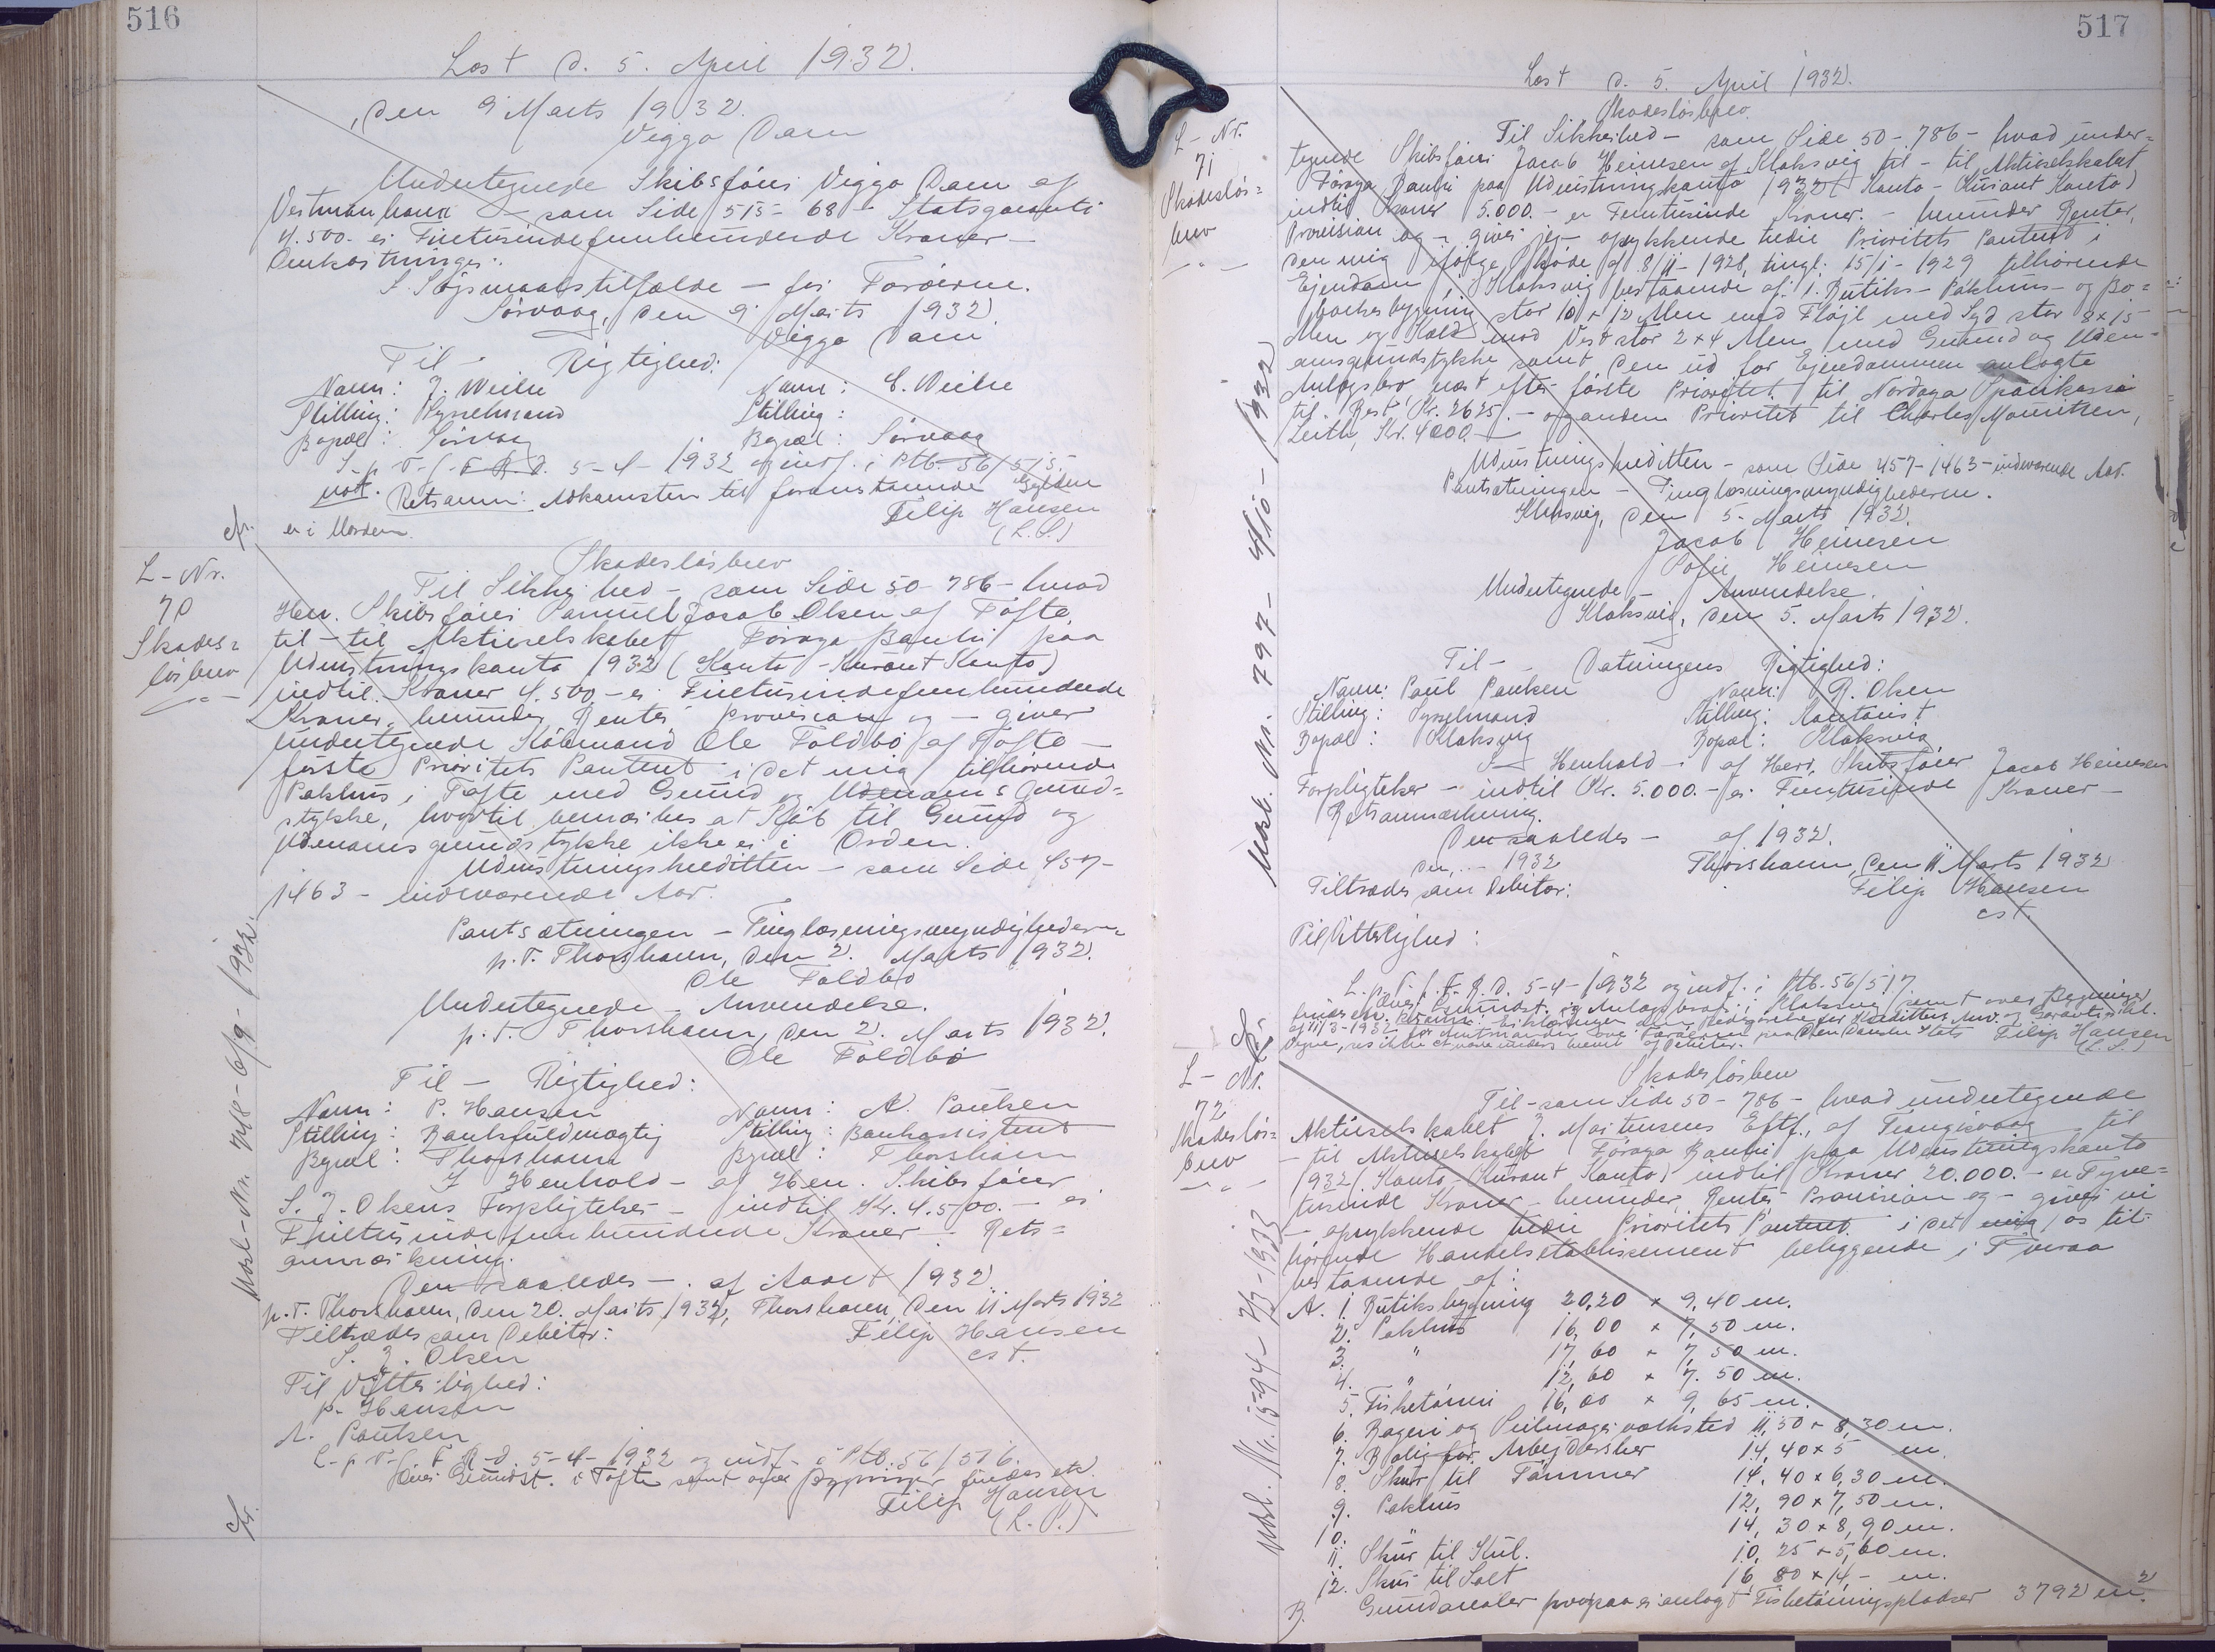 516
Læst d. 5. April 1932.
, den 9 Marts 1932.
Viggo Dam
Undertegnede Skibsförer Viggo Dam af
Vestmanhavn - som Side 515 - 68 - Statsgaranti
4.500.- er Firetusindefemhundrede Kroner -
Omkostninger.
I Søgsmaalstilfælde - for Færöerne.
Sörvaag, den 9 Marts 1932.
Viggo Dam
Til - Rigtighed:
Navn: J. Weihe Navn: E. Weihe
Stilling: Sysselmand Stilling:
Bopæl: Sörvaag Bopæl: Sørvaag
L. p. T. f. F. R. D. 5-4-1932 og indf. i Ptb. 56/515.
not. Retsanm: Adkomsten til foranstaaende
er i Uorden. Filip Hansen
(L.S.)
L-Nr.
70
Skades=
lösbrev
Skadeslösbrev
Til Sikkerhed - som Side 50-786 - hvad
Herr. Skibsförer Samuel Jacob Olsen af Tofte
til - til Aktieselskabet Föroya Banki paa
Udrustningskonto 1932 (Konto-Kurant Konto)
indtil Kroner 4.500.- er Firetusindefemhundrede
Kroner, herunder Renter Provision og - giver
undertegnede Købmand Ole Foldbo af Tofte -
første Prioritets Panteret i det mig tilhørende
Pakhus i Tofte med Grund og Udenoms Grund=
stykke, hvortil bemærkes at Köb til Grund og
Udenomsgrundstykke ikke er i Orden.
Udrustningskreditten - som Side 457-
1463 - indeværende Aar.
Pantsætningen - Tinglæsningsmyndighederne
p.T. Thorshavn, den 2. Marts 1932.
Ole Foldbo
Undertegnede - Anvendelse.
p.T. Thorshavn, den 2. Marts 1932.
Ole Foldbo
Til - Rigtighed:
Navn: P. Hansen Navn: A. Poulsen
Stilling: Bankfuldmægtig Stilling: Bankassistent
Bopæl: Thorshavn Bopæl: Thorshavn
I Henhold - af Herr. Skibsförer
S. J. Olsens Forpligtelser - indtil Kr. 4.500.- er
Firetusindefemhundrede Kroner - Rets=
anmærkning.
Den saaledes - af Aaret 1932.
p.T. Thorshavn, den 20. Marts 1932, Thorshavn, den 11 Marts 1932
Tiltrædes som Debitor: Filip Hansen
S. J. Olsen cst.
Til Vitterlighed:
P. Hansen
A. Poulsen
L. p. T. f. F. R. D. 5-4-1932 og indf. i Ptb. 56/516.
Over Grundst. i Tofte samt over Bygninger findes
Filip Hansen
(L.S.)
517
Læst d. 5. April 1932.
L-Nr.
71
Skadeslös=
brev
Skadeslösbrev.
Til Sikkerhed - som Side 50-786 - hvad under=
tegnede Skibsförer Jacob Heinesen af Klaksvig til - til Aktieselskabet
Föroya Banki paa Udrustningskonto 1932 (Konto-Kurant Konto)
indtil Kroner 5.000.- er Femtusinde Kroner. - herunder Renter,
Provision og - giver jeg - oprykkende tredie Prioritets Panteret i
den mig ifølge Skøde af 8/11-1928, tingl. 15/1-1929 tilhørende
Ejendom i Klaksvig bestaaende af: 1. Butiks- Pakhus- og Bo=
stor 10 x 12 Alen med Fløjl mod Syd stor 8x15
Alen og mod Vest stor 2x4 Alen med Grund og Uden=
omsgrundstykke samt den ud for Ejendommen anlagte
Anlægsbro næst efter første Prioritet til Nordoya Sparikassi
til Rest Kr. 2625.- og anden Prioritet til Charles Mauritzen,
Leith, Kr. 4000.-
Udrustningskreditten - som Side 457-1463 - indeværende Aar.
Pantsætningen - Tinglæsningsmyndighederne.
Klaksvig, den 5. Marts 1932.
Jacob Heinesen
Sofie Heinesen
Undertegnede - Anvendelse.
Klaksvig, den 5. Marts 1932.
Til - Datringens Rigtighed:
Navn: Poul Poulsen Navn: R. Olsen
Stilling: Sysselmand Stilling: Kontorist
Bopæl: Klaksvig Bopæl: Klaksvig
I Henhold - af Herr. Skibsfører Jacob Heinesen
Forpligtelser - indtil Kr. 5.000.- er Femtusinde Kroner -
Retsanmærkning.
Den saaledes - af 1932.
den, ... 1932 Thorshavn, den 11 Marts 1932
Tiltrædes som Debitor: Filip Hansen
cst.
Til Vitterlighed:
L. p. T. f. F. R. D. 5-4-1932 og indf. i Ptb. 56/517.
Filip Hansen
(L.S.)
L-Nr.
72
Skadeslös=
brev
Skadeslösbrev
Til - som Side 50-786 - hvad undertegnede
Aktieselskabet J. Mortensens Eftf., af Trangisvaag til
- til Aktieselskabet Föroya Banki paa Udrustningskonto
1932 (Konto-Kurant Konto) indtil Kroner 20.000.- er Tyve=
tusinde Kroner - herunder Renter Provision og - giver vi
- oprykkende tredie Prioritets Panteret i det mig, os til=
hørende Handelsetablissement beliggende i Tveraa
bestaaende af:
A. 1. Butiksbygning 20,20 x 9,40 m.
2. Pakhus 16,00 x 7,50 m.
3. " 17,60 x 7,50 m.
4. " 12,60 x 7.50 m.
5. Fisketørreri 16,00 x 9,65 m.
6. Bageri og Seilmagerværksted 11,50 x 8,30 m.
7. Bolig for Arbejdersker 14,40 x 5 m.
8. Skur til Tømmer 14,40 x 6,30 m.
9. Pakhus 12,90 x 7,50 m.
10. " 14,30 x 8,90 m.
11. Skur til Kul. 10,25 x 5,60 m.
12. Skur til Salt 16,80 x 14,- m.
B. Grundarealer hvorpaa er anlagt Fisketørringspladser 3792 m².